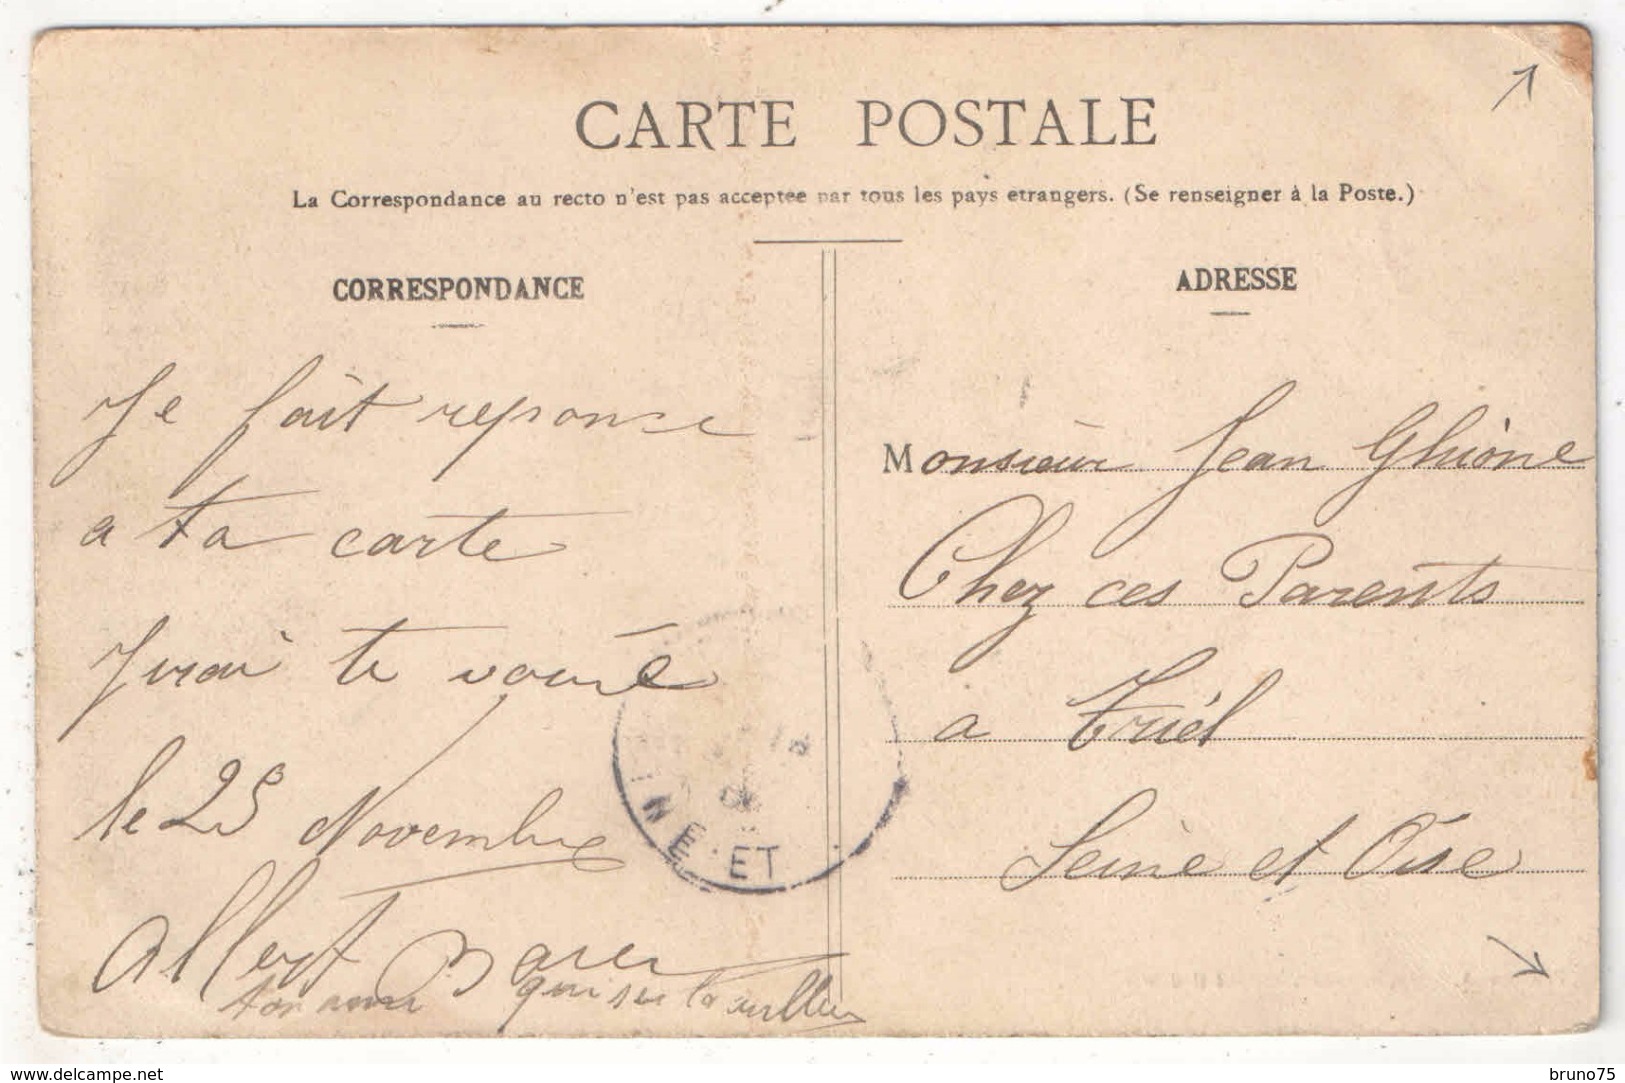 CARTE POSTALE
La Correspondance au recto n'est pas acceptée par tous les pays etrangers. (Se renseigner à la Poste.)
CORRESPONDANCE
Je fait reponse
a ta carte
J'irai te
le 25 Novembre
Albert
ton ami qui
INE·ET
ADRESSE
Monsieur Jean Ghione
Chez ces Parents
a Triel
Seine et Oise
www.delcampe.net
bruno75